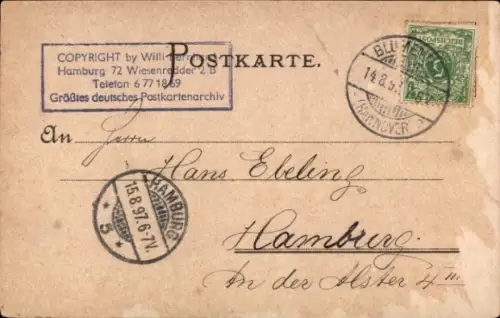 COPYRIGHT by Willi
Hamburg 72 Wiesenredder 2 B
Telefon 6 77 18 69
Größtes deutsches Postkartenarchiv
POSTKARTE.
14.8.97
(HANNOVER)
An Herrn
Hans Ebeling
HAMBURG
15.8.97. 6-7V.
* 5 *
Hamburg
An der Alster 4 III